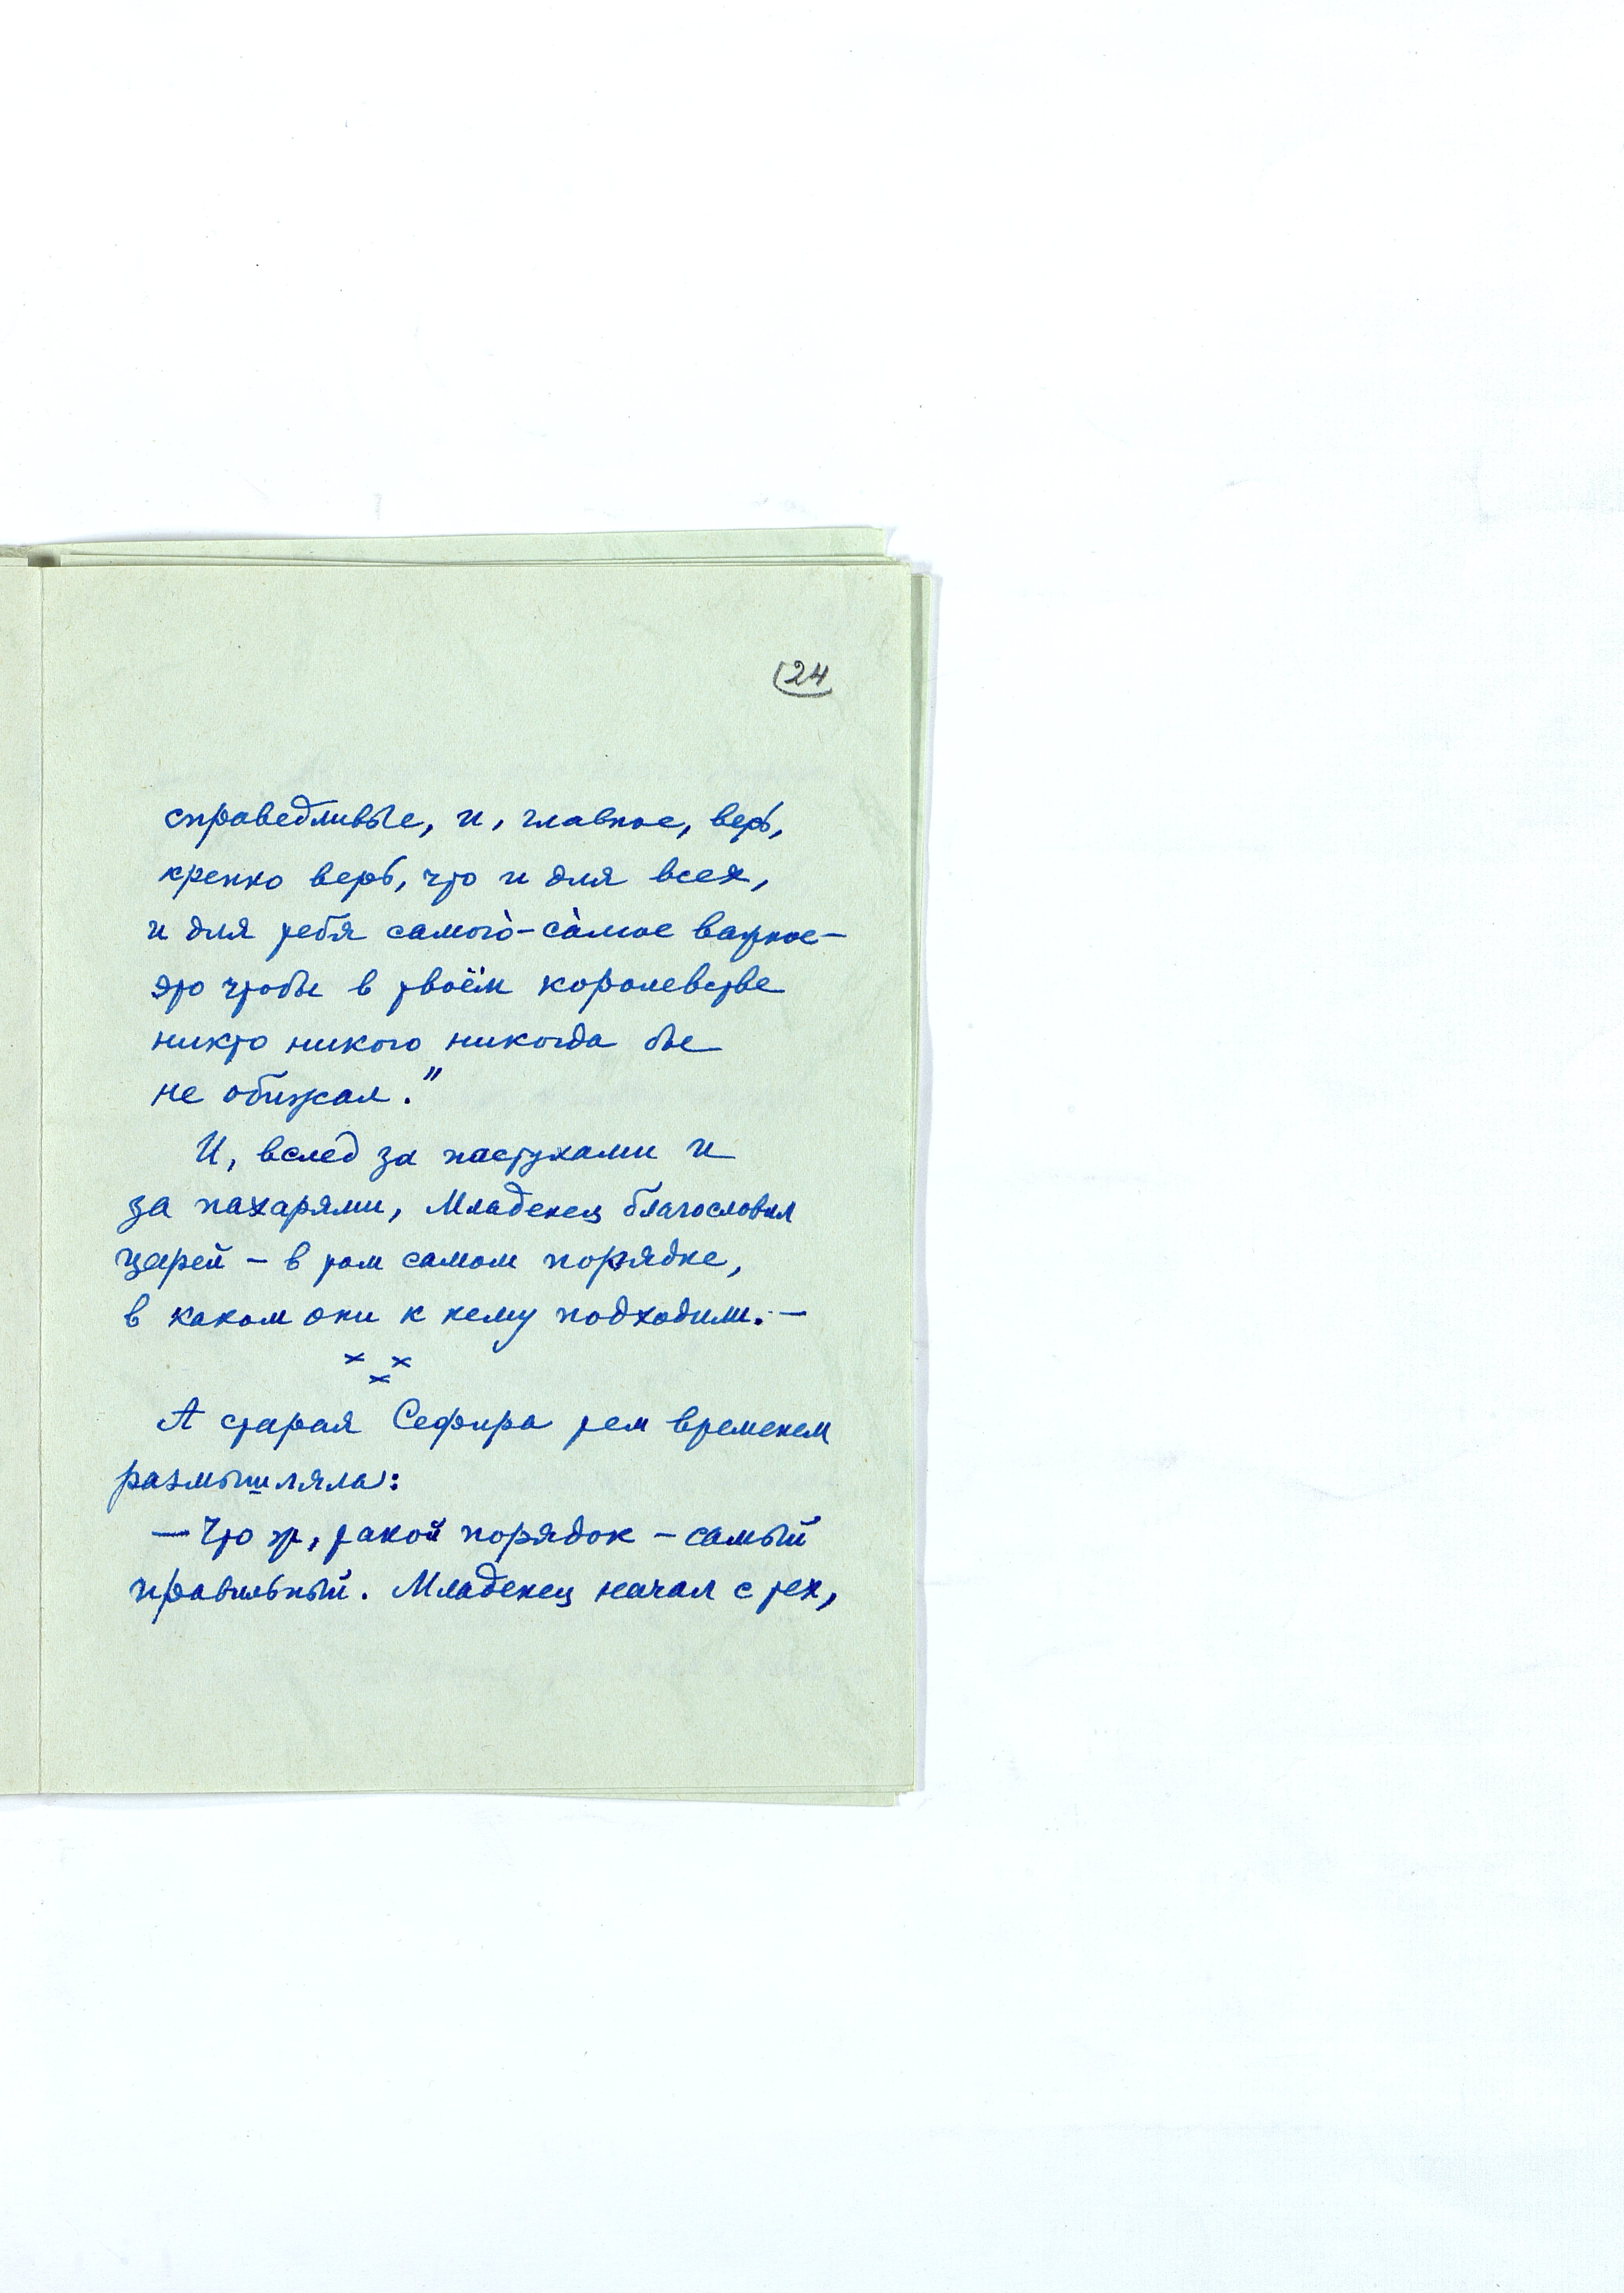 24
справедливые, и, главное, верь,
крепко верь, что и для всех,
и для тебя самого̀-са̀мое важное—
это чтобы в твоём королевстве
никто никого никогда бы
не обижал."
И, вслед за пастухами и
за пахарями, Младенец благословил
царей – в том самом порядке,
в каком они к нему подходили. —
× × ×
А старая Сефира тем временем
размышляла:
— Что ж, такой порядок – самый
правильный. Младенец начал с тех,